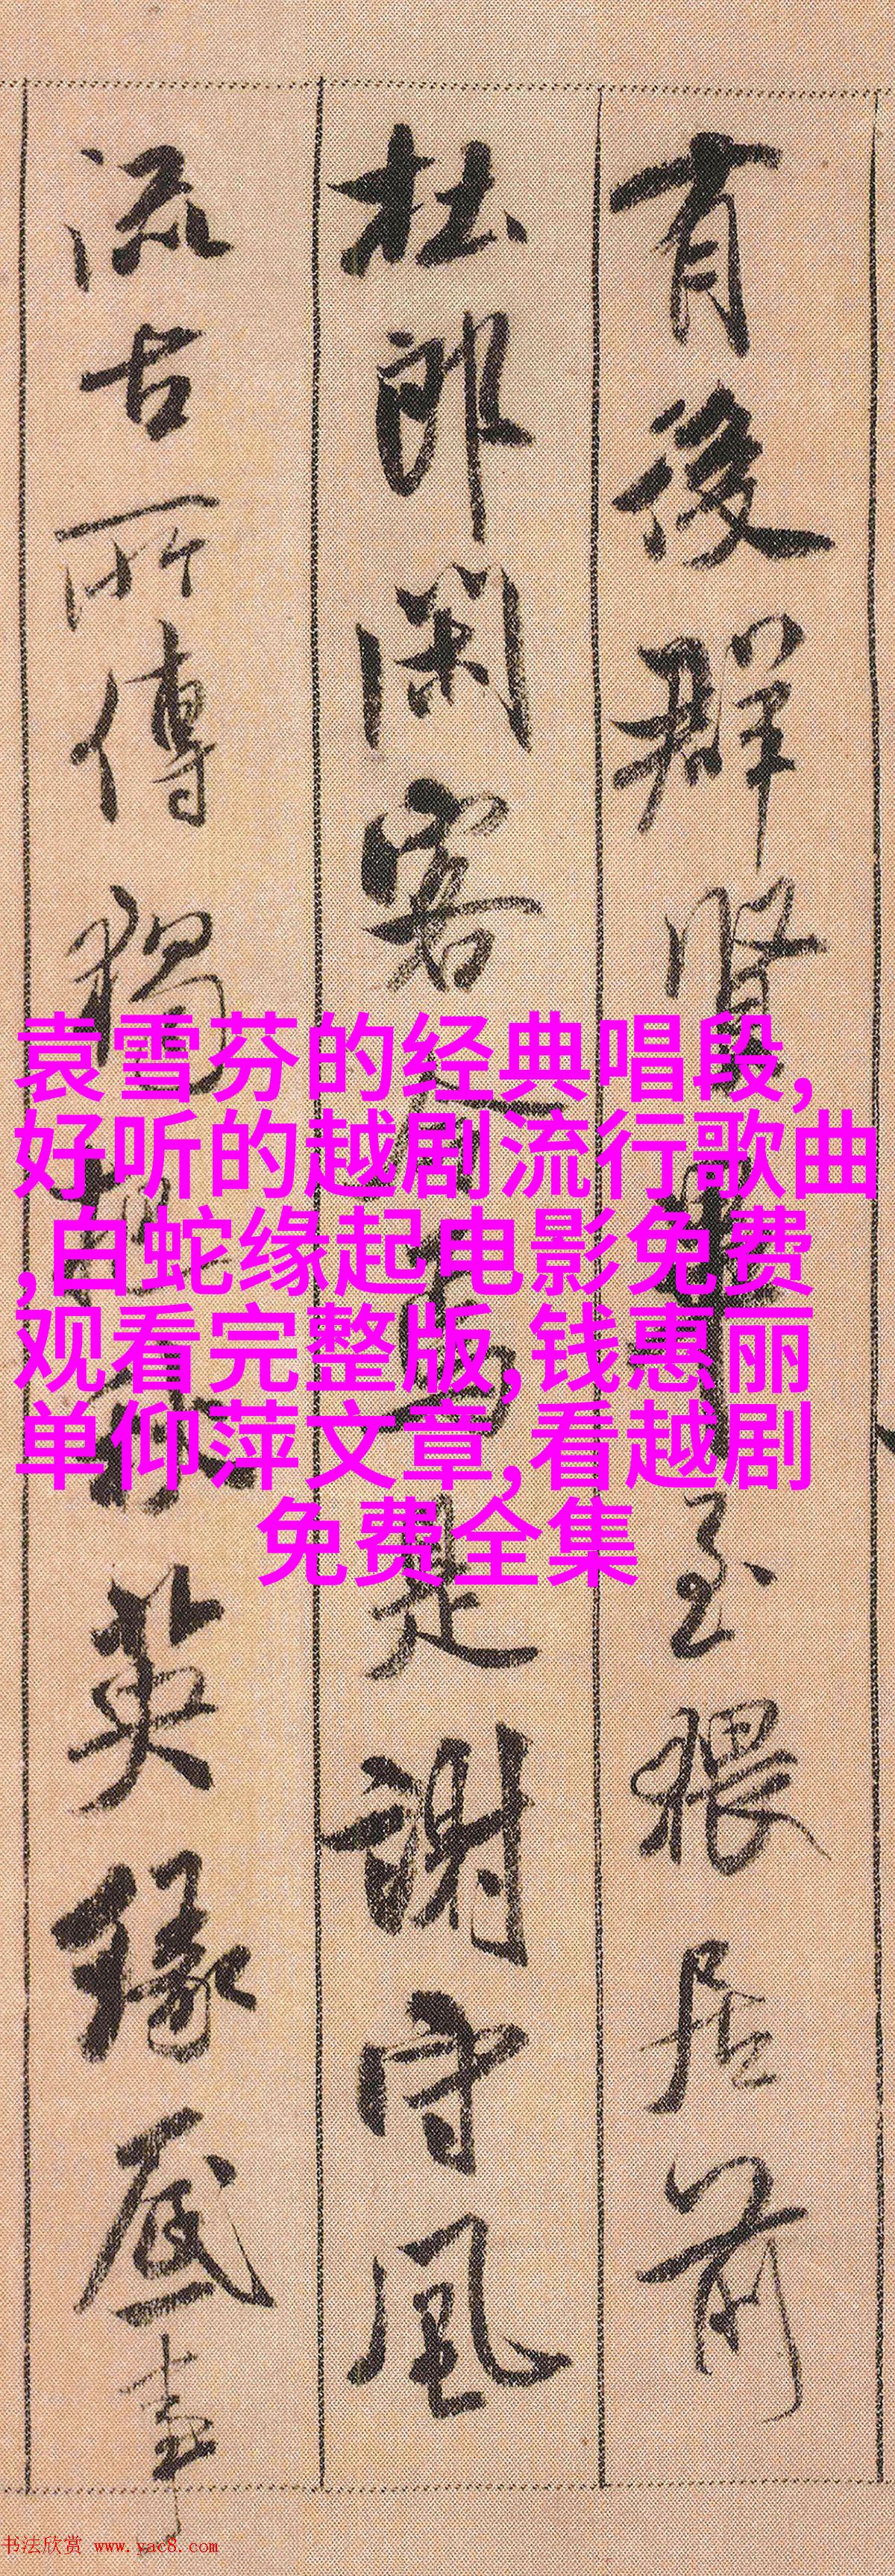 有後群賢畢至猥居前
杜郎閑客今焉是謝守風
流古所傳獨把秋英緣底事
袁雪芬的经典唱段,
好听的越剧流行歌曲
,白蛇缘起电影免费
观看完整版,钱惠丽
单仰萍文章,看越剧
免费全集
书法欣赏 www.yac8.com